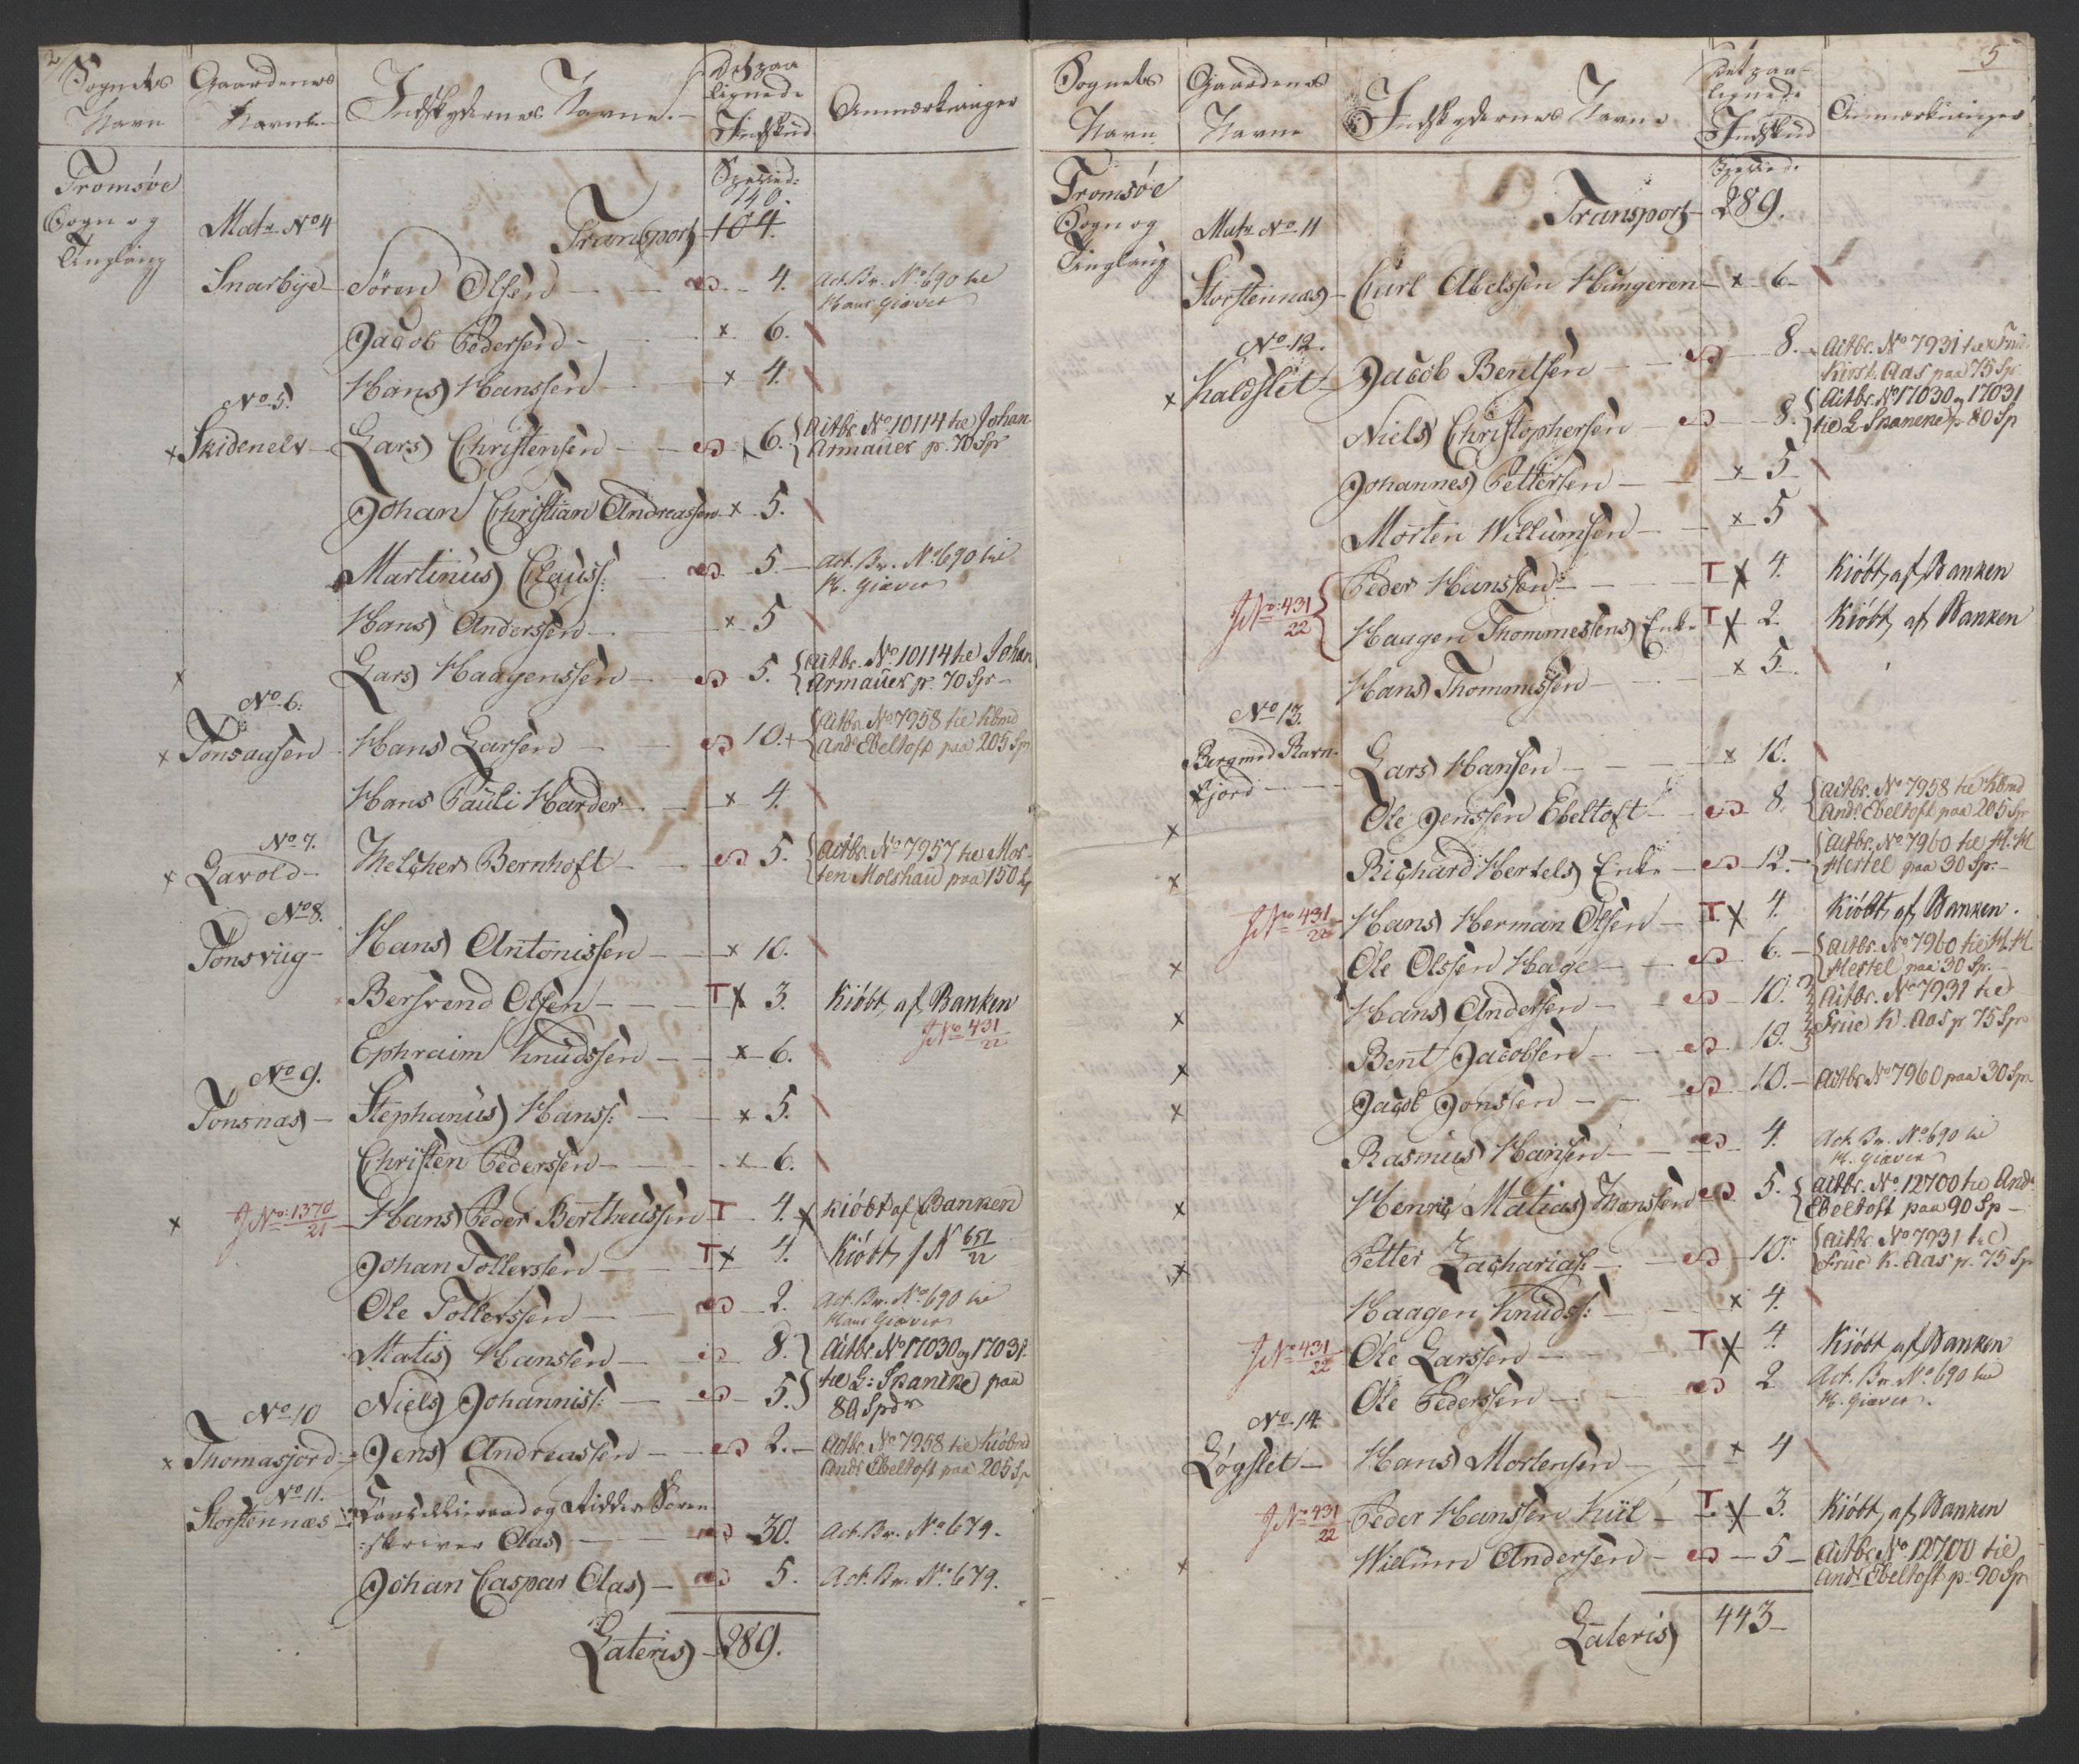 2
Sognets Navn
Gaardenes Navne
Indskydernes Navne
Det paalignede Indskud
Anmærkninger
Tromsøe Sogn og Tinglaug
Specied:
140.
Matr. No 4
Transport 104.
Snarbye Søren Olsen 4. Act. Br. No 690 til Hans Giæver
Jacob Pedersen x 6.
Hans Hanssen x 4.
No 5.
x Skidenelv Lars Christensen 6. Actbr. No 10114 til Johan Armauer pr. 70 Spr
Johan Christian Andreassen x 5.
Martinus Clauss: 5. Act. Br. No 690 til H. Giæver
Hans Anderssen x 5
x Lars Haagenssen 5. Actbr. No 10114 til Johan Armauer pr. 70 Spr
No 6.
x Tonsausen Hans Larsen 10. Actbr. No 7958 til Kbmd And: Ebeltoft paa 205 Spr
Hans Pauli Harder x 4.
No 7.
x Lavold Melcher Bernhoft 5. Actbr. No 7957 til Morten Molshau paa 150 Sp
No 8.
Tonsviig Hans Antonissen x 10.
Bersvend Olsen T x 3. Kiöbt af Banken
J No 431/22
Ephraim Knudssen x 6.
No 9.
Tonsnas Stephanus Hanss: x 5.
Christen Pederssen x 6.
x J No: 1370/21 Hans Peder Bertheussen T 4. x Kiöbt af Banken
Johan Tollerssen T x 4. Kiöbt J N 651/22
Ole Tollerssen 2. Act. Br. No 690 til Hans Giæver
Matis Hanssen 8. Actbr. No 17030 og 17031
Niels Johanniss: 5. til L: Skancke paa 80 Spdr
No 10
x Thomasjord Jens Andreassen 2. Actbr. No 7958 til Kiöbmd And: Ebeltoft paa 205 Sp
No 11.
Storstennæs Cancelliraad og Ridder Sorenskriver Aas 30. Act. Br. No 679.
Johan Caspar Aas 5. Act. Br. No 679.
Lateris 289.
5
Sognets Navn
Gaardenes Navne
Indskydernes Navne
Det paalignede Indskud
Anmærkninger
Tromsøe Sogn og Tinglaug
Specied:
Matr No 11
Transport 289.
Storstennæs Carl Abelssen Hungeren x 6
No 12.
x Kaldslet Jacob Bentsen 8. Actbr. No 7931 til Frue Kirst. Aas paa 75 Spr
Niels Christophersen 8. Actbr. No 17030 og 17031 til L Skancke pr 80 Sp
Johannes Pettersen x 5
Morten Willumsen x 5
J No: 431/22
Peder Hanssen T x 4. Kiöbt af Banken
Haagen Thommessens Enke T x 2. Kiöbt af Banken
Hans Thommessen x 5.
No 13.
Berg med Ravnfjord Lars Hansen x 10.
x Ole Jenssen Ebeltoft 8. Actbr. No 7958 til Kbmd And: Ebeltoft paa 205 Spr
x Richard Hertels Enke 12. Actbr. No 7960 til H. H. Hertel paa 30 Sp.
J No 431/22 Hans Herman Olsen T x 4. Kiöbt af Banken.
x Ole Olssen Hage 6. Actbr. No 7960 til H. H. Hertel paa 30 Sp.
x Hans Andersen 10. Actbr. No 7931 til
x Bent Jacobsen 10. Frue K. Aas pr 75 Spr
x Jacob Jonssen 10. Actbr No 7960 paa 30 Spr
Rasmus Hansen 4. Act. Br. No 690 til H. Giæver
x Henric Matias Monssen 5. Actbr. No 12700 til And: Ebeltoft paa 90 Sp
x Petter Zacharias: 10. Actbr. No 7931 til Frue K. Aas pr. 75 Sp
Haagen Knudss: x 4.
J No 431/22 Ole Larssen T x 4. Kiöbt af Banken
Ole Pederssen 2 Act. Br. No 690 til H. Giæver.
No 14.
Løgslet Hans Mortensen x 4
J No 431/22 Peder Hanssen Kiil T x 3. Kiöbt af Banken
x Willum Andersen 5 Actbr No 12700 til And: Ebeltoft pr 90 Spr
Lateris 443